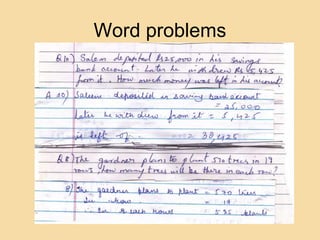 Word problems
Q10) Salem deposited Rs 25,000 in his savings
bank account. Later he withdrew Rs 5,425
from it. How much money was left in his account?
A 10) Saleem deposited in saving bank account
= 25,000
Later he withdrew from it = 5,425
is left of = 38,425
Q8) The gardner plans to plant 570 trees in 19
rows, how many trees will be there in each row?
8) The gardner plans to plant = 570 trees
In row = 19
in each rows = 595